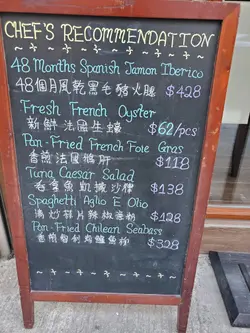 CHEF'S RECOMMENDATION
48 Months Spanish Jamon Iberico
48個月風乾黑毛豬火腿 $428
Fresh French Oyster
新鮮法國生蠔 $62/pcs
Pan-Fried French Foie Gras
香煎法國鵝肝 $118
Tuna Caesar Salad
吞拿魚凱撒沙律 $138
Spaghetti Aglio E Olio
清炒蒜片辣椒意粉 $128
Pan-Fried Chilean Seabass
香煎智利 $328